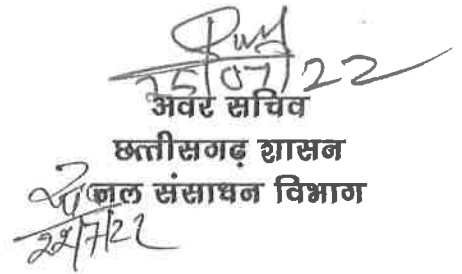 25/07/22
अवर सचिव
छत्तीसगढ़ शासन
जल संसाधन विभाग
22/7/22